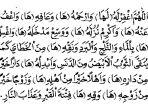 اَللّٰهُمَّ اغْفِرْ لَهُ (لَهَا) وَارْحَمْهُ (هَا) وَعَافِهِ (هَا) وَاعْفُ
عَنْهُ (هَا) وَأَكْرِمْ نُزُلَهُ (هَا) وَوَسِّعْ مَدْخَلَهُ (هَا) وَاغْسِلْهُ (هَا)
بِالْمَاءِ وَالثَّلْجِ وَالْبَرَدِ وَنَقِّهِ (هَا) مِنَ الْخَطَايَا كَمَا
يُنَقَّى الثَّوْبُ الْأَبْيَضُ مِنَ الدَّنَسِ وَأَبْدِلْهُ (هَا) دَارًا خَيْرًا
مِنْ دَارِهِ (هَا) وَأَهْلًا خَيْرًا مِنْ أَهْلِهِ (هَا) وَزَوْجًا خَيْرًا
مِنْ زَوْجِهِ (هَا) وَقِهِ (هَا) فِتْنَةَ الْقَبْرِ وَعَذَابَ النَّارِ.